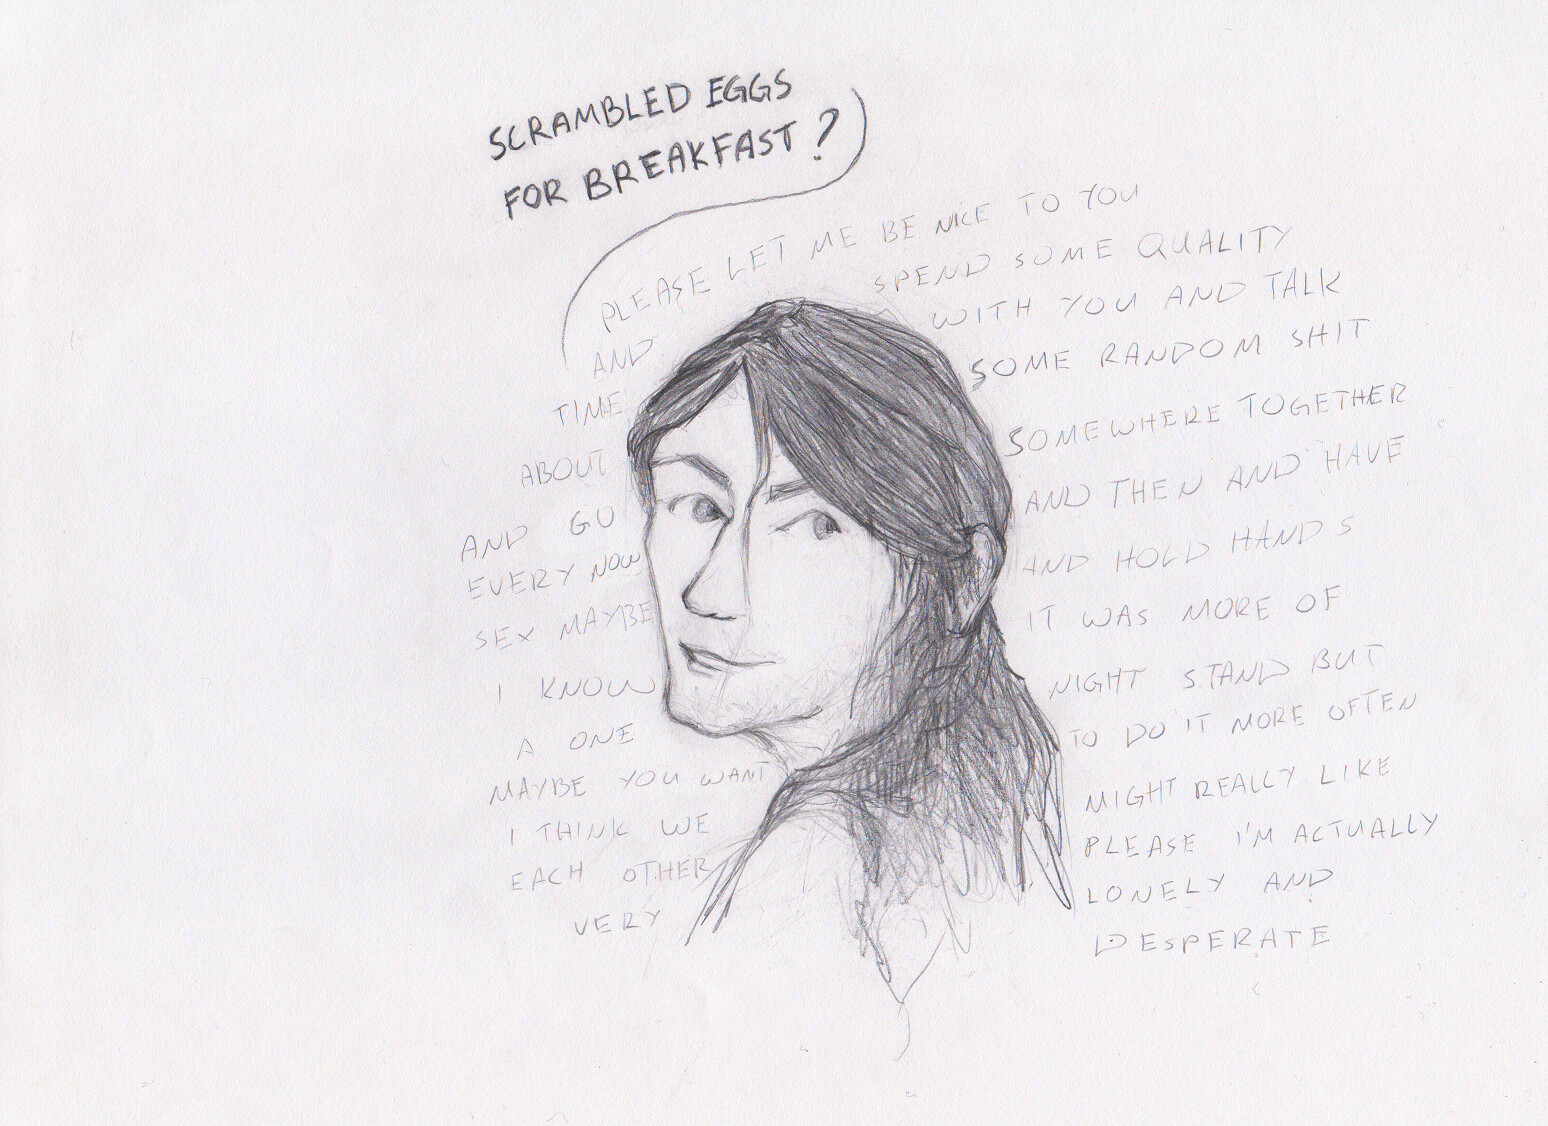 SCRAMBLED EGGS
FOR BREAKFAST?
PLEASE LET ME BE NICE TO YOU
AND SPEND SOME QUALITY
TIME WITH YOU AND TALK
ABOUT SOME RANDOM SHIT
AND GO SOMEWHERE TOGETHER
EVERY NOW AND THEN AND HAVE
SEX MAYBE AND HOLD HANDS
I KNOW IT WAS MORE OF
A ONE NIGHT STAND BUT
MAYBE YOU WANT TO DO IT MORE OFTEN
I THINK WE MIGHT REALLY LIKE
EACH OTHER PLEASE I'M ACTUALLY
VERY LONELY AND
DESPERATE